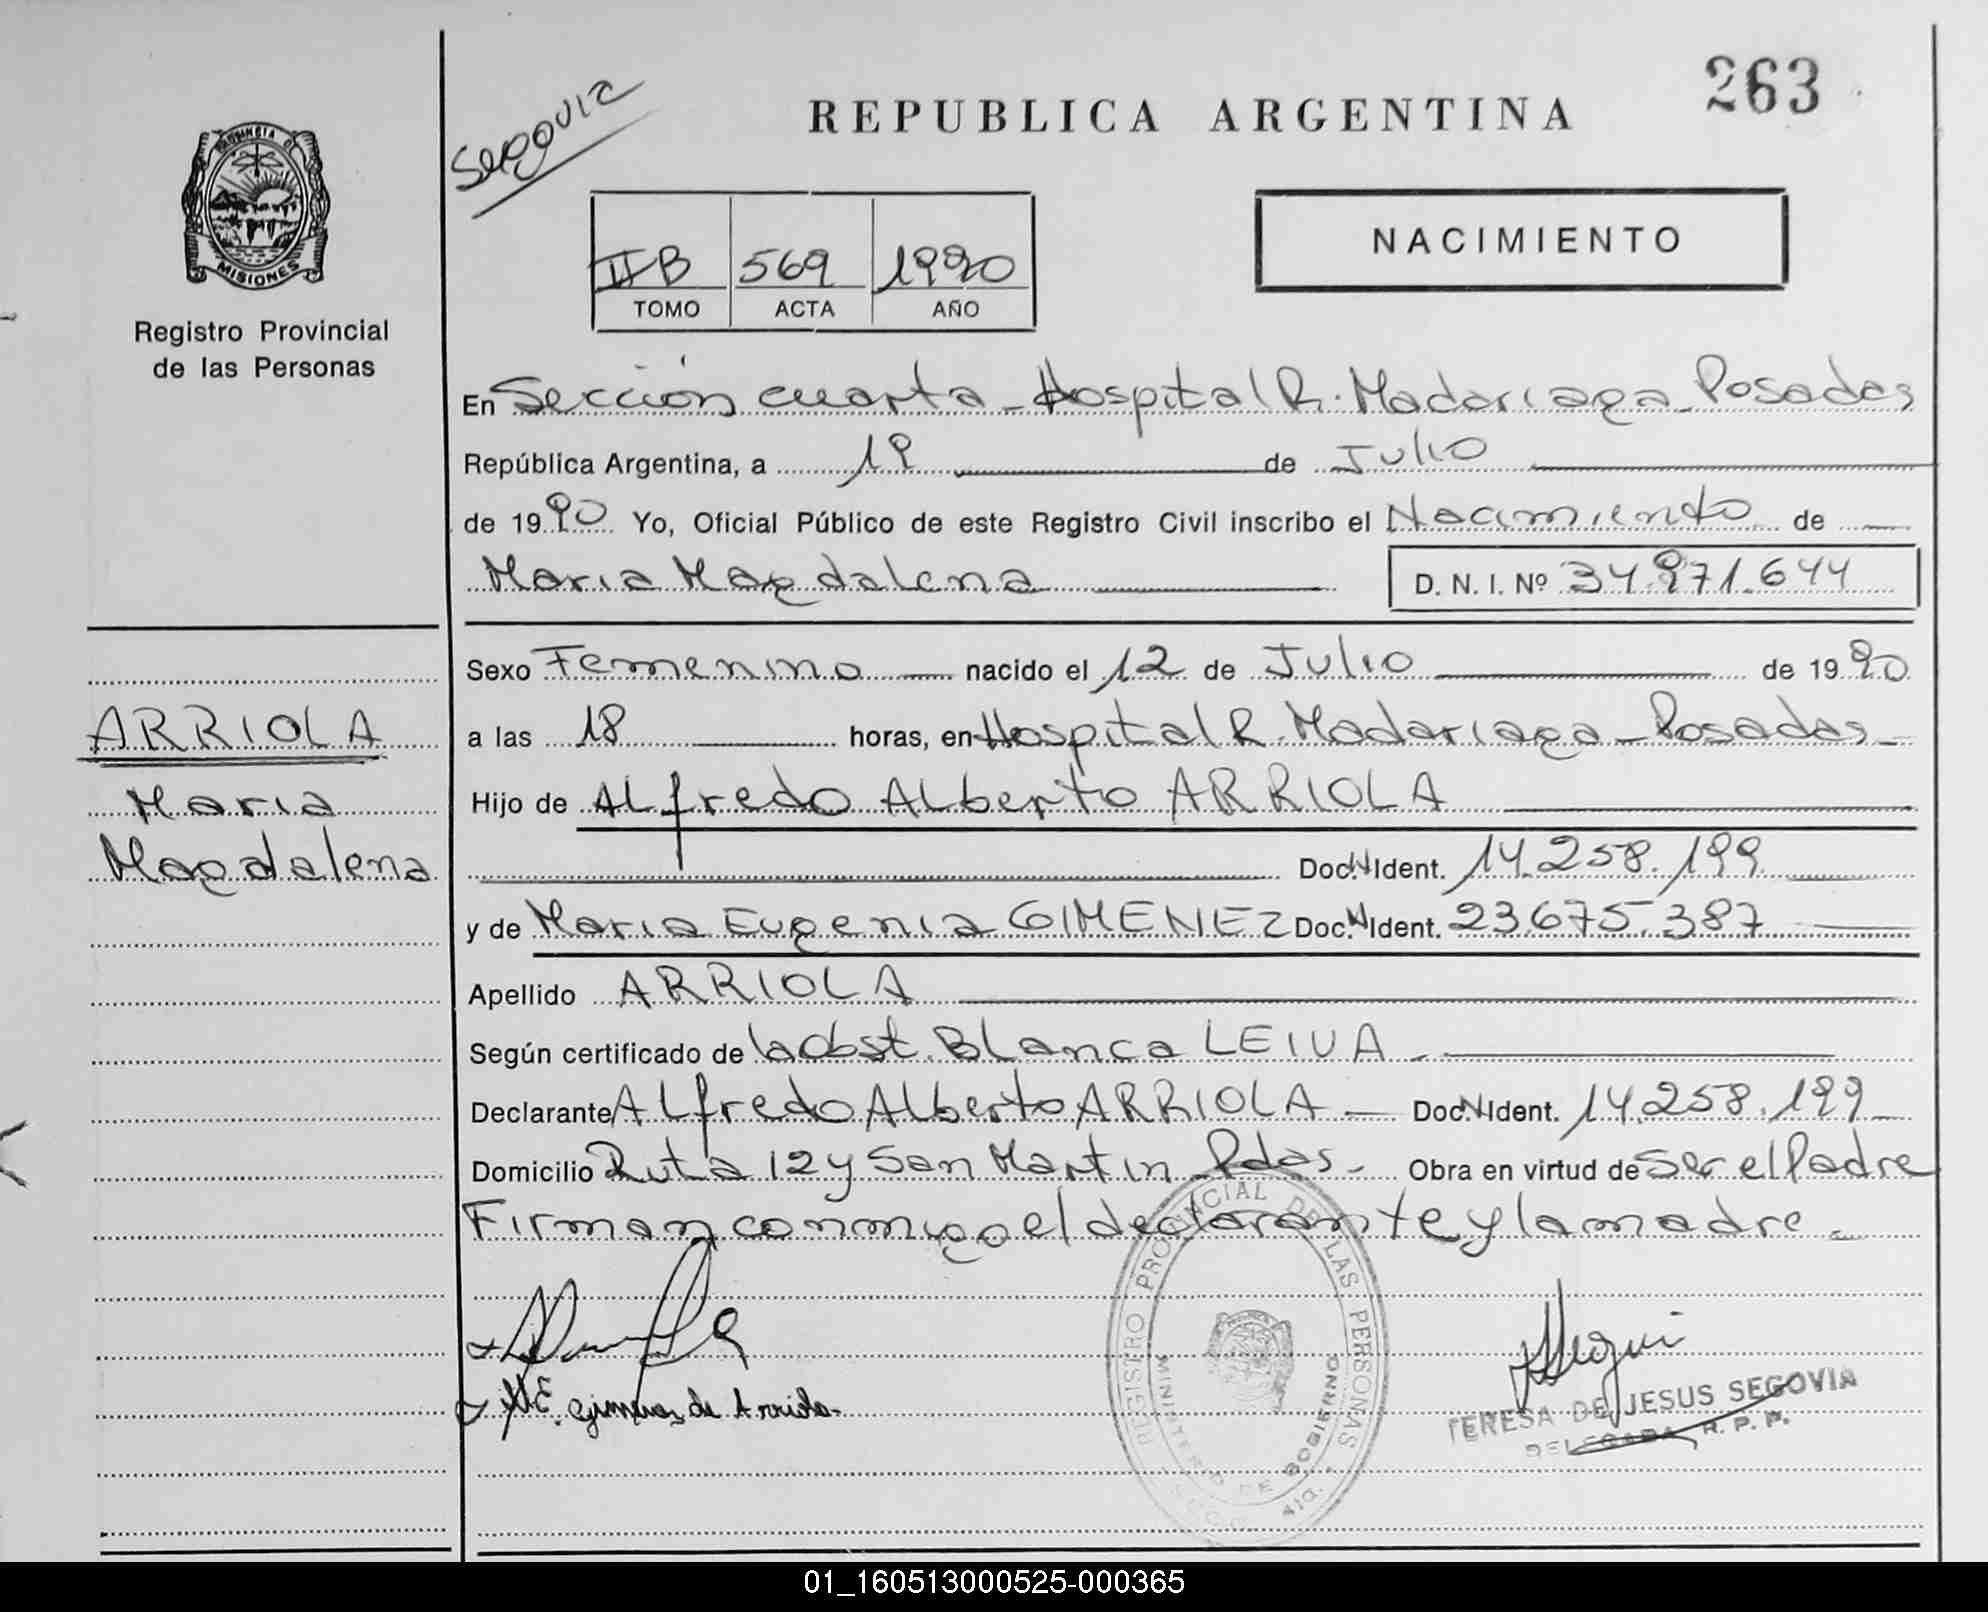 263
Segovia
REPUBLICA ARGENTINA
PROVINCIA DE
MISIONES
Registro Provincial
de las Personas
NACIMIENTO
II B 569 1990
TOMO ACTA AÑO
En Sección cuarta - Hospital R. Madariaga - Posadas
República Argentina, a 19 de Julio
de 1990 Yo, Oficial Público de este Registro Civil inscribo el Nacimiento de
Maria Magdalena D. N. I. Nº 34.971.644
Sexo Femenino nacido el 12 de Julio de 1990
a las 18 horas, en Hospital R. Madariaga - Posadas -
Hijo de Alfredo Alberto ARRIOLA
Doc. N Ident. 14.258.199
y de Maria Eugenia GIMENEZ Doc. N Ident. 23.675.387
Apellido ARRIOLA
Según certificado de la Obst. Blanca LEIVA
Declarante Alfredo Alberto ARRIOLA Doc. N Ident. 14.258.199
Domicilio Ruta 12 y San Martin - Pdas - Obra en virtud de Ser el Padre
Firman conmigo el declarante y la madre
ARRIOLA
Maria
Magdalena
M.E. Gimenez de Arriola
REGISTRO PROVINCIAL DE LAS PERSONAS
MINISTERIO DE GOBIERNO
4ta.
TERESA DE JESUS SEGOVIA
DELEGADA R. P. P.
01_160513000525-000365